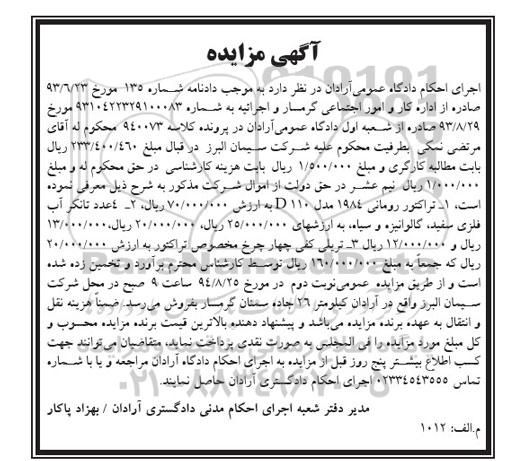 آگهی مزایده
اجرای احکام دادگاه عمومی‌آرادان در نظر دارد به موجب دادنامه شماره ۱۳۵ مورخ ۹۳/۶/۲۳
صادره از اداره کار و امور اجتماعی گرمسار و اجرائیه به شماره ۹۳۱۰۴۲۲۳۲۹۱۰۰۰۸۳ مورخ
۹۳/۸/۲۹ صادره از شعبه اول دادگاه عمومی‌آرادان در پرونده کلاسه ۹۴۰۰۷۳ محکوم له آقای
مرتضی نمکی بطرفیت محکوم علیه شرکت سیمان البرز در قبال مبلغ ۲۳۳/۴۰۰/۴۶۰ ریال
بابت مطالبه کارگری و مبلغ ۱/۵۰۰/۰۰۰ ریال بابت هزینه کارشناسی در حق محکوم له و مبلغ
۱/۰۰۰/۰۰۰ ریال نیم عشر در حق دولت از اموال شرکت مذکور به شرح ذیل معرفی نموده
است، ۱ـ تراکتور رومانی ۱۹۸۴ مدل D ۱۱۰ به ارزش ۷۰/۰۰۰/۰۰۰ ریال، ۲ـ ۴عدد تانکر آب
فلزی سفید، گالوانیزه و سیاه، به ارزشهای ۲۵/۰۰۰/۰۰۰ ریال، ۲۰/۰۰۰/۰۰۰ ریال،۱۳/۰۰۰/۰۰۰
ریال و ۱۲/۰۰۰/۰۰۰ ریال ۳ـ تریلی کفی چهار چرخ مخصوص تراکتور به ارزش ۲۰/۰۰۰/۰۰۰
ریال که جمعاً به مبلغ ۱۶۰/۰۰۰/۰۰۰ ریال توسط کارشناس محترم برآورد و تخمین زده شده
است و از طریق مزایده عمومی‌نوبت دوم در مورخ ۹۴/۸/۲۵ ساعت ۹ صبح در محل شرکت
سیمان البرز واقع در آرادان کیلومتر ۲۶ جاده سمنان گرمسار بفروش می‌رسد. ضمناً هزینه نقل
و انتقال به عهده برنده مزایده می‌باشد و پیشنهاد دهنده بالاترین قیمت برنده مزایده محسوب و
کل مبلغ مورد مزایده را فی المجلس به صورت نقدی پرداخت نماید، متقاضیان می‌توانند جهت
کسب اطلاع بیشتر پنج روز قبل از مزایده به اجرای احکام دادگاه آرادان مراجعه و یا با شماره
تماس ۰۲۳۳۴۵۴۳۵۵۵ اجرای احکام دادگستری آرادان حاصل نمایند.
مدیر دفتر شعبه اجرای احکام مدنی دادگستری آرادان / بهزاد پاکار
م.الف: ۱۰۱۲